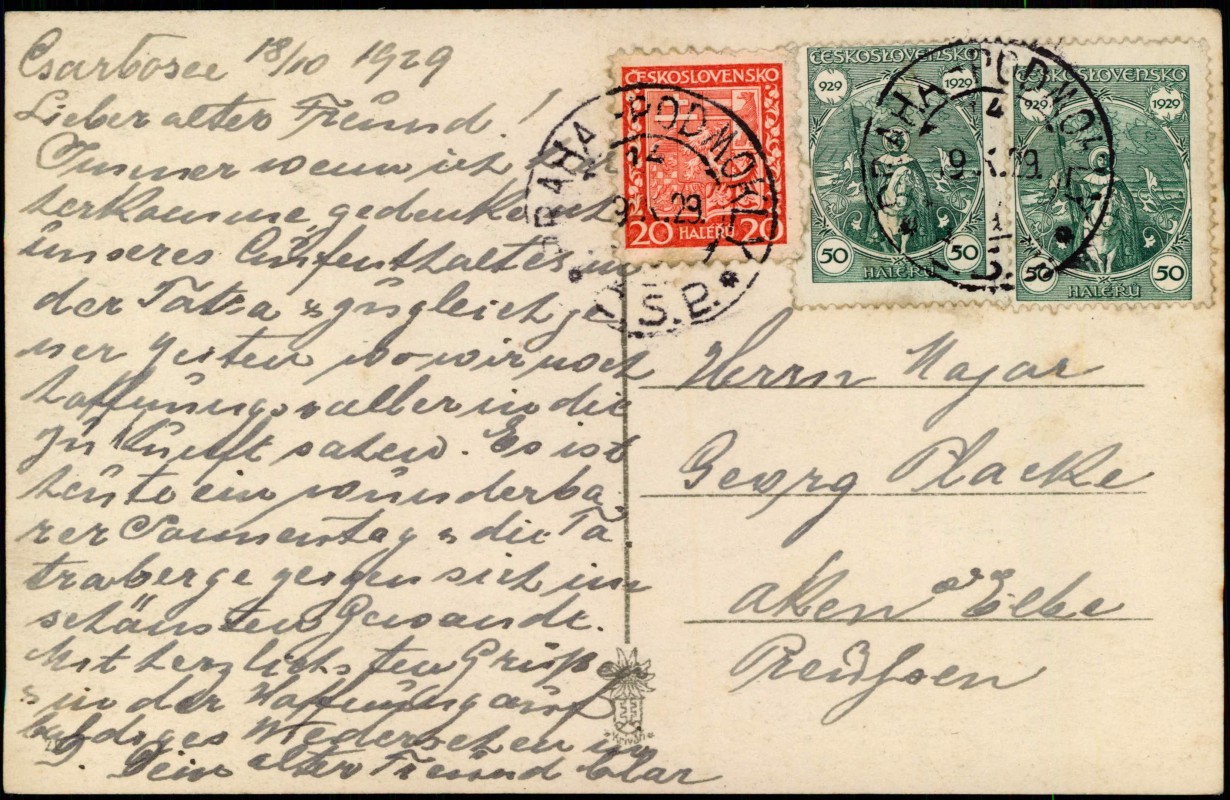 Csarbosee 18/10 1929
Lieber alter Freund!
Immer wenn ich hie
herkomme, gedenke ich
unseres Aufenthaltes in
der Tatra u zugleich je
ner Zeiten wo wir noch
hoffnungsvoller in die
Zukunft sahen. Es ist
heute ein wunderba
rer Sonnentag u die Ta
traberge zeigen sich im
schönsten Gewande.
Mit herzlichsten Grüße
u in der Hoffnung auf
baldiges Wiedersehen
Dein alter Freund
ČESKOSLOVENSKO
20 HALÉŘŮ 20
ČESKOSLOVENSKO
929 1929
50 HALÉŘŮ 50
ČESKOSLOVENSKO
929 1929
50 HALÉŘŮ 50
PRAHA - PODMOKLY
9.X.29
Č.S.P.
PRAHA - PODMOKLY
9.X.29
Herrn Major
Georg Placke
Aken a/Elbe
Preußen
Kriváň